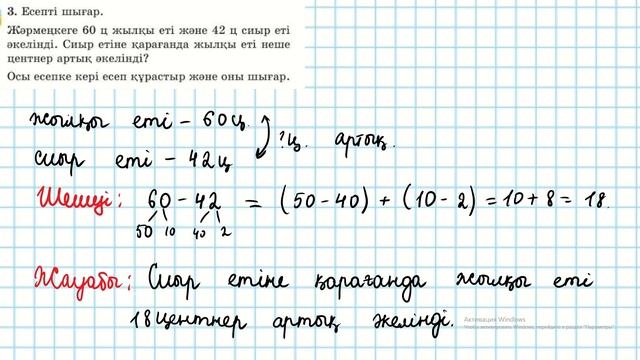 3. Есепті шығар.
Жәрмеңкеге 60 ц жылқы еті және 42 ц сиыр еті
әкелінді. Сиыр етіне қарағанда жылқы еті неше
центнер артық әкелінді?
Осы есепке кері есеп құрастыр және оны шығар.
жылқы еті – 60ц.
?ц. артық.
сиыр еті – 42ц
Шешуі: 60 – 42 = (50 – 40) + (10 – 2) = 10 + 8 = 18.
50 10 40 2
Жауабы: Сиыр етіне қарағанда жылқы еті
18 центнер артық әкелінді.
Активация Windows
Чтобы активировать Windows, перейдите в раздел "Параметры".